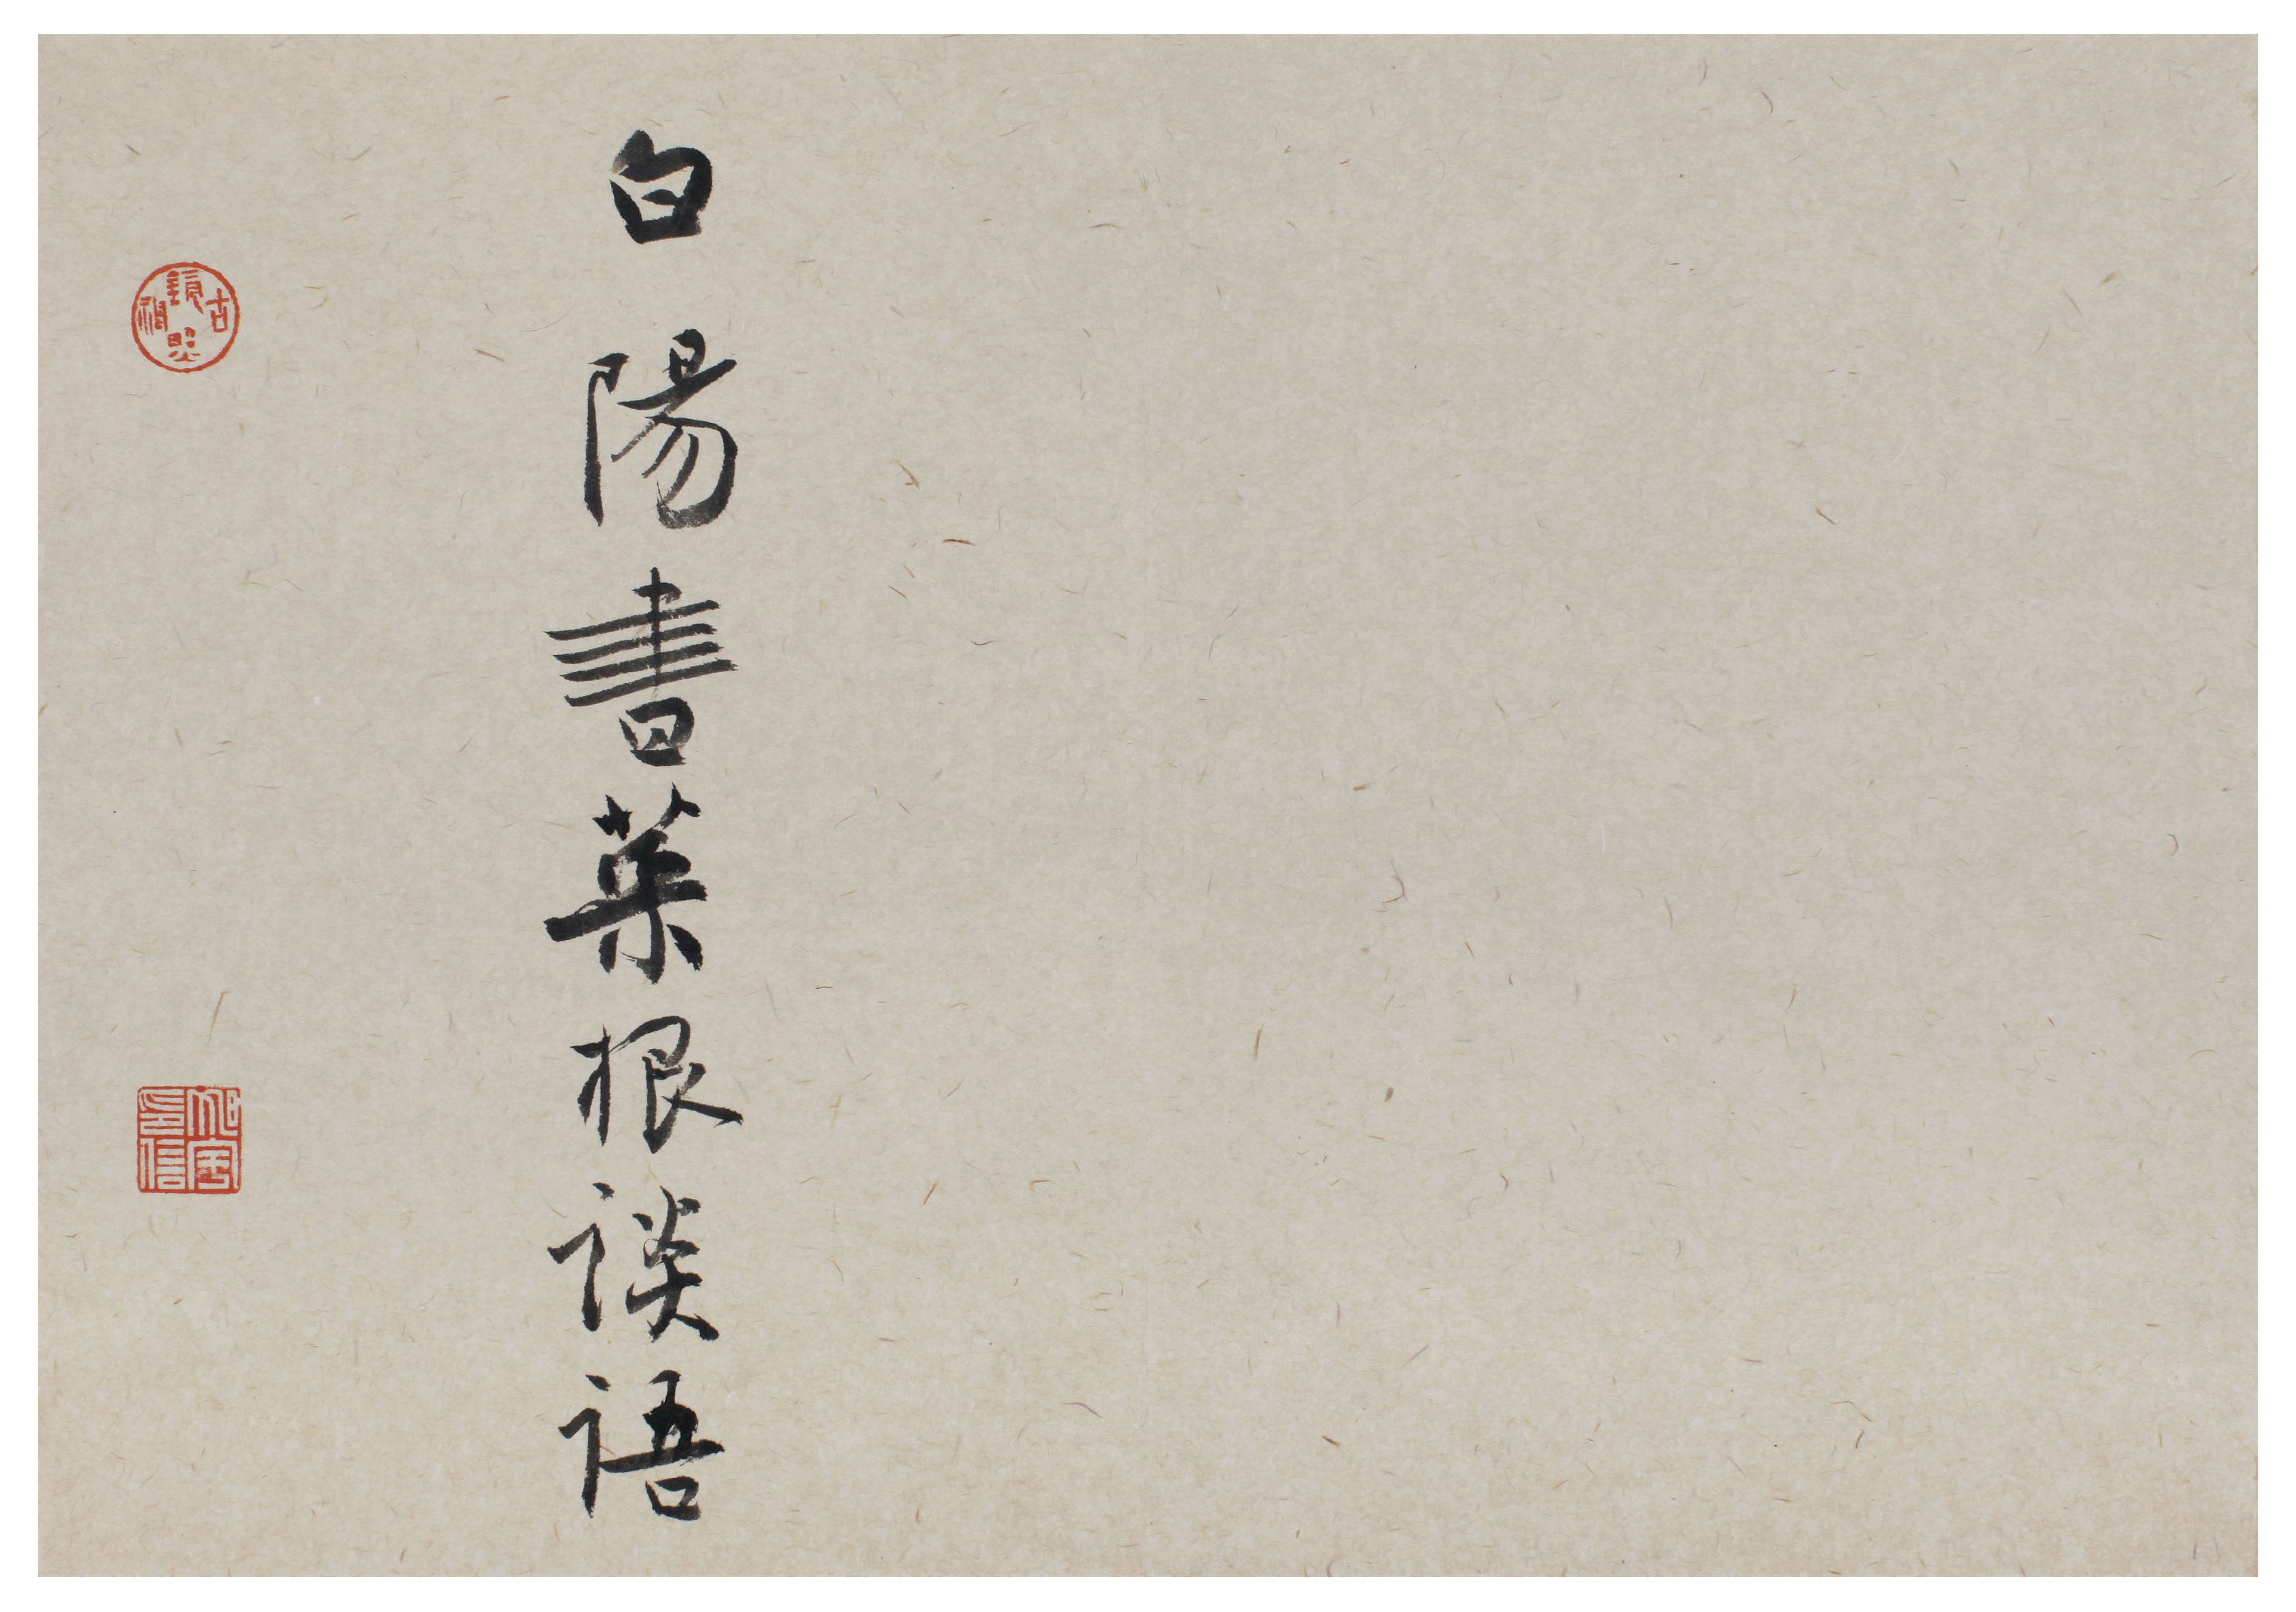 白陽書菜根談語
古鏡照神
印信